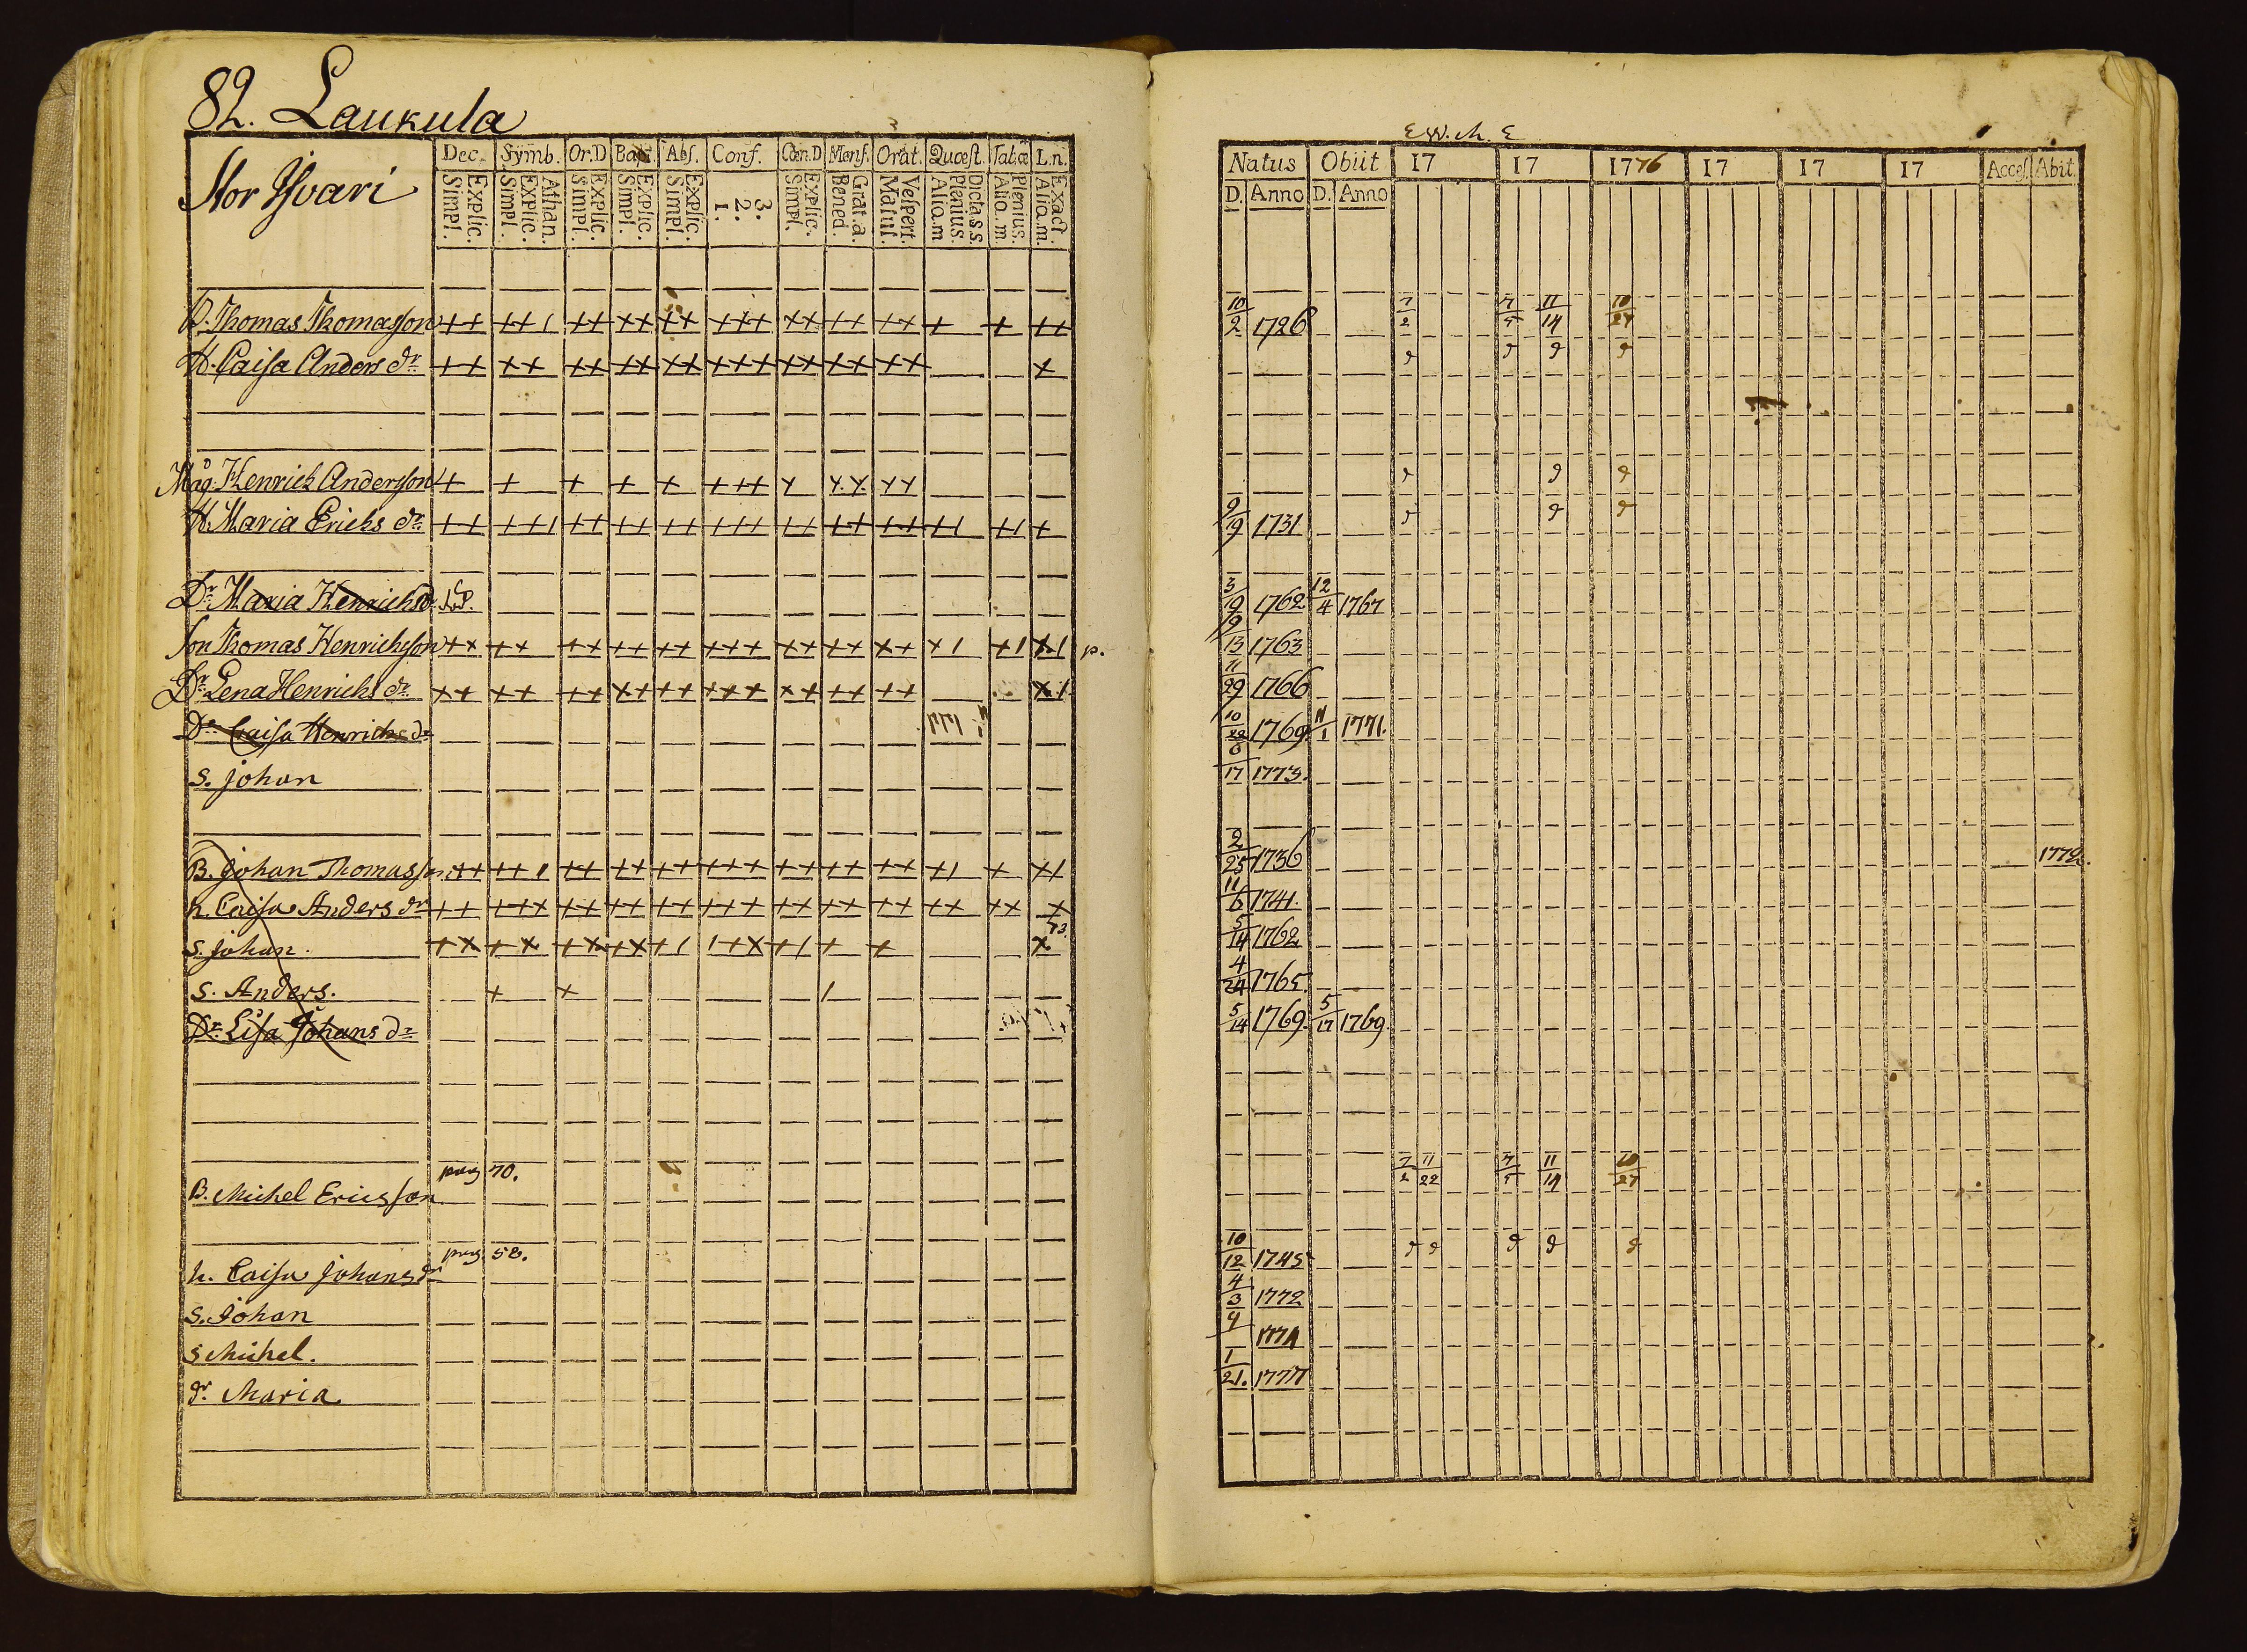 82. Laukula
Stor Ysvari
Dec. Symb. Or.D Bapt. Abs. Conf. Cœn.D Mens. Orat. Quæst. Tab.œ L.n.
Simpl. Explic. Simpl. Explic. Athan. Simpl. Explic. Simpl. Explic. Simpl. Explic. 1. 2. 3. Simpl. Explic. Bened. Grat.a. Matut. Vespert. Aliq.m Plenius. Dicta.s.s. Aliq.m. Plenius. Aliq.m. Exact.
B. Thomas Thomasson ++ ++1 ++ ++ ++ +++ ++ ++ ++ + + ++
H. Caisa Anders dr ++ ++ ++ ++ ++ +++ ++ ++ ++ +
Måg. Henrich Andersson + + + + + +++ + ++ ++
H. Maria Erichs dr ++ ++1 ++ ++ ++ +++ ++ ++ ++ +1 +1 +
Dr. Maria Henrichs dr
Son Thomas Henrichsson ++ ++ ++ ++ ++ +++ ++ ++ ++ +1 +1 +1 p.
Dr. Lena Henrichs dr ++ ++ ++ ++ ++ +++ ++ ++ ++ +1
Dr. Caisa Henrichs dr
S. Johan
B. Johan Thomasson ++ ++1 ++ ++ ++ +++ ++ ++ ++ +1 + +1
h. Caisa Anders dr ++ +++ ++ ++ ++ +++ ++ ++ ++ ++ ++ +
S. Johan. ++ ++ ++ ++ +1 1++ +1 + + + 73.
S. Anders. + + 1
Dr. Lisa Johans dr
B. Michel Ericsson pag 70.
h. Caisa Johans dr pag. 58.
S. Johan
S Michel.
dr. Maria
E W. M. E
Natus Obiit 17 17 1776 17 17 17 Acces. Abit.
D. Anno D. Anno
10/2 1726 7/2 7/5 11/14 10/27
9/19 1731
3/9 1762 12/4 1767
9/13 1763
11/29 1766
10/22 1769 11/1 1771.
6/17 1773.
2/25 1736 1772.
11/6 1741.
5/14 1762
4/24 1765.
5/14 1769. 5/17 1769.
7/2 11/22 7/5 11/14 10/27
10/12 1745
4/3 1772
4 1774
1/21. 1777